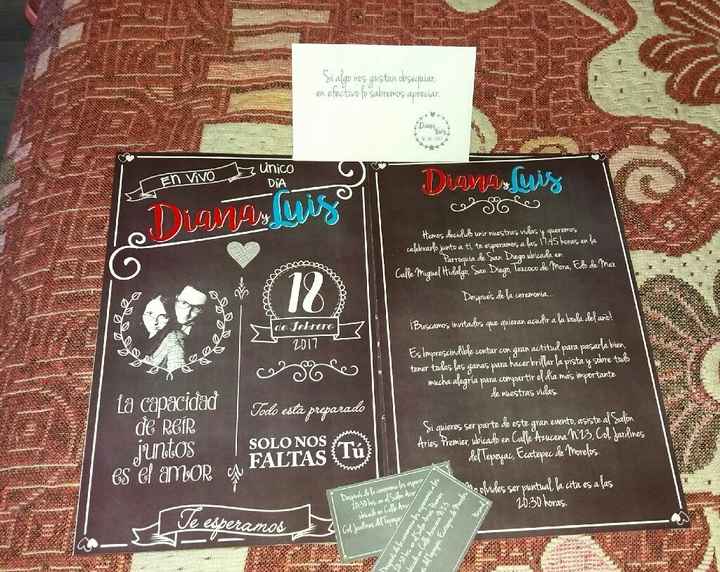 Si algo nos gustan obsequiar,
en efectivo lo sabremos apreciar.
Diana
Luis
En vivo
único
día
Diana y Luis
18
de Febrero
2017
La capacidad
de reír
juntos
es el amor
Todo está preparado
SOLO NOS
FALTAS Tú
Te esperamos
Diana y Luis
Hemos decidido unir nuestras vidas y queremos
celebrarlo junto a ti, te esperamos a las 17:45 horas en la
Parroquia de San Diego ubicada en
Calle Miguel Hidalgo, San Diego, Texcoco de Mora, Edo. de Mex.
Después de la ceremonia...
¡Buscamos invitados que quieran acudir a la boda del año!
Es Imprescindible contar con gran actitud para pasarla bien,
tener todas las ganas para hacer brillar la pista y sobre todo
mucha alegría para compartir el día más importante
de nuestras vidas.
Si quieres ser parte de este gran evento, asiste al Salon
Aries Premier, ubicado en Calle Azucena N°23, Col. Jardines
del Tepeyac, Ecatepec de Morelos.
olvides ser puntual, la cita es a las
20:30 horas.
Después de la ceremonia los espera
20:30 hrs. en el Salon Aries
Ubicado en Calle
Col. Jardines del Tepeyac